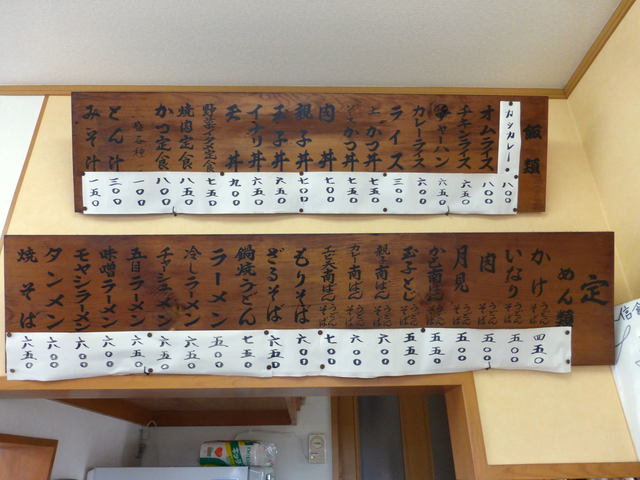 飯類
カツカレー 八〇〇
オムライス 八〇〇
チキンライス 六五〇
チャーハン 六五〇
カレーライス 六〇〇
ライス 三〇〇
上かつ丼 七五〇
かつ丼 七五〇
肉丼 七〇〇
親子丼 七〇〇
玉子丼 六五〇
イナリ丼 六五〇
天丼 九〇〇
野菜イタ定食 七五〇
焼肉定食 八五〇
かつ定食 八五〇
一〇〇
とん汁 三〇〇
みそ汁 一五〇
定
めん類
かけ うどん そば 四五〇
いなり うどん そば 五〇〇
肉 うどん そば 五〇〇
月見 うどん そば 五〇〇
南ばん うどん そば 五五〇
玉子とじ うどん そば 五五〇
親子南ばん うどん そば 六〇〇
カレー南ばん うどん そば 六〇〇
エビ天南ばん うどん そば 七〇〇
もりそば 六〇〇
ざるそば 六五〇
鍋焼うどん 七五〇
ラーメン 五〇〇
冷しラーメン 六五〇
チャーシューメン 六五〇
五目ラーメン 六〇〇
味噌ラーメン 六〇〇
モヤシラーメン 六〇〇
タンメン 六〇〇
焼そば 六五〇